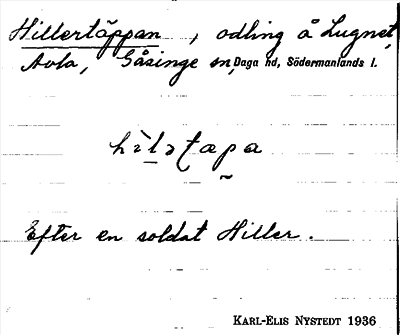 Hillertäppan, odling å Lugnet,
Avla, Gåsinge sn, Daga hd, Södermanlands l.
hìlətapa
Efter en soldat Hiller.
KARL-ELIS NYSTEDT 1936